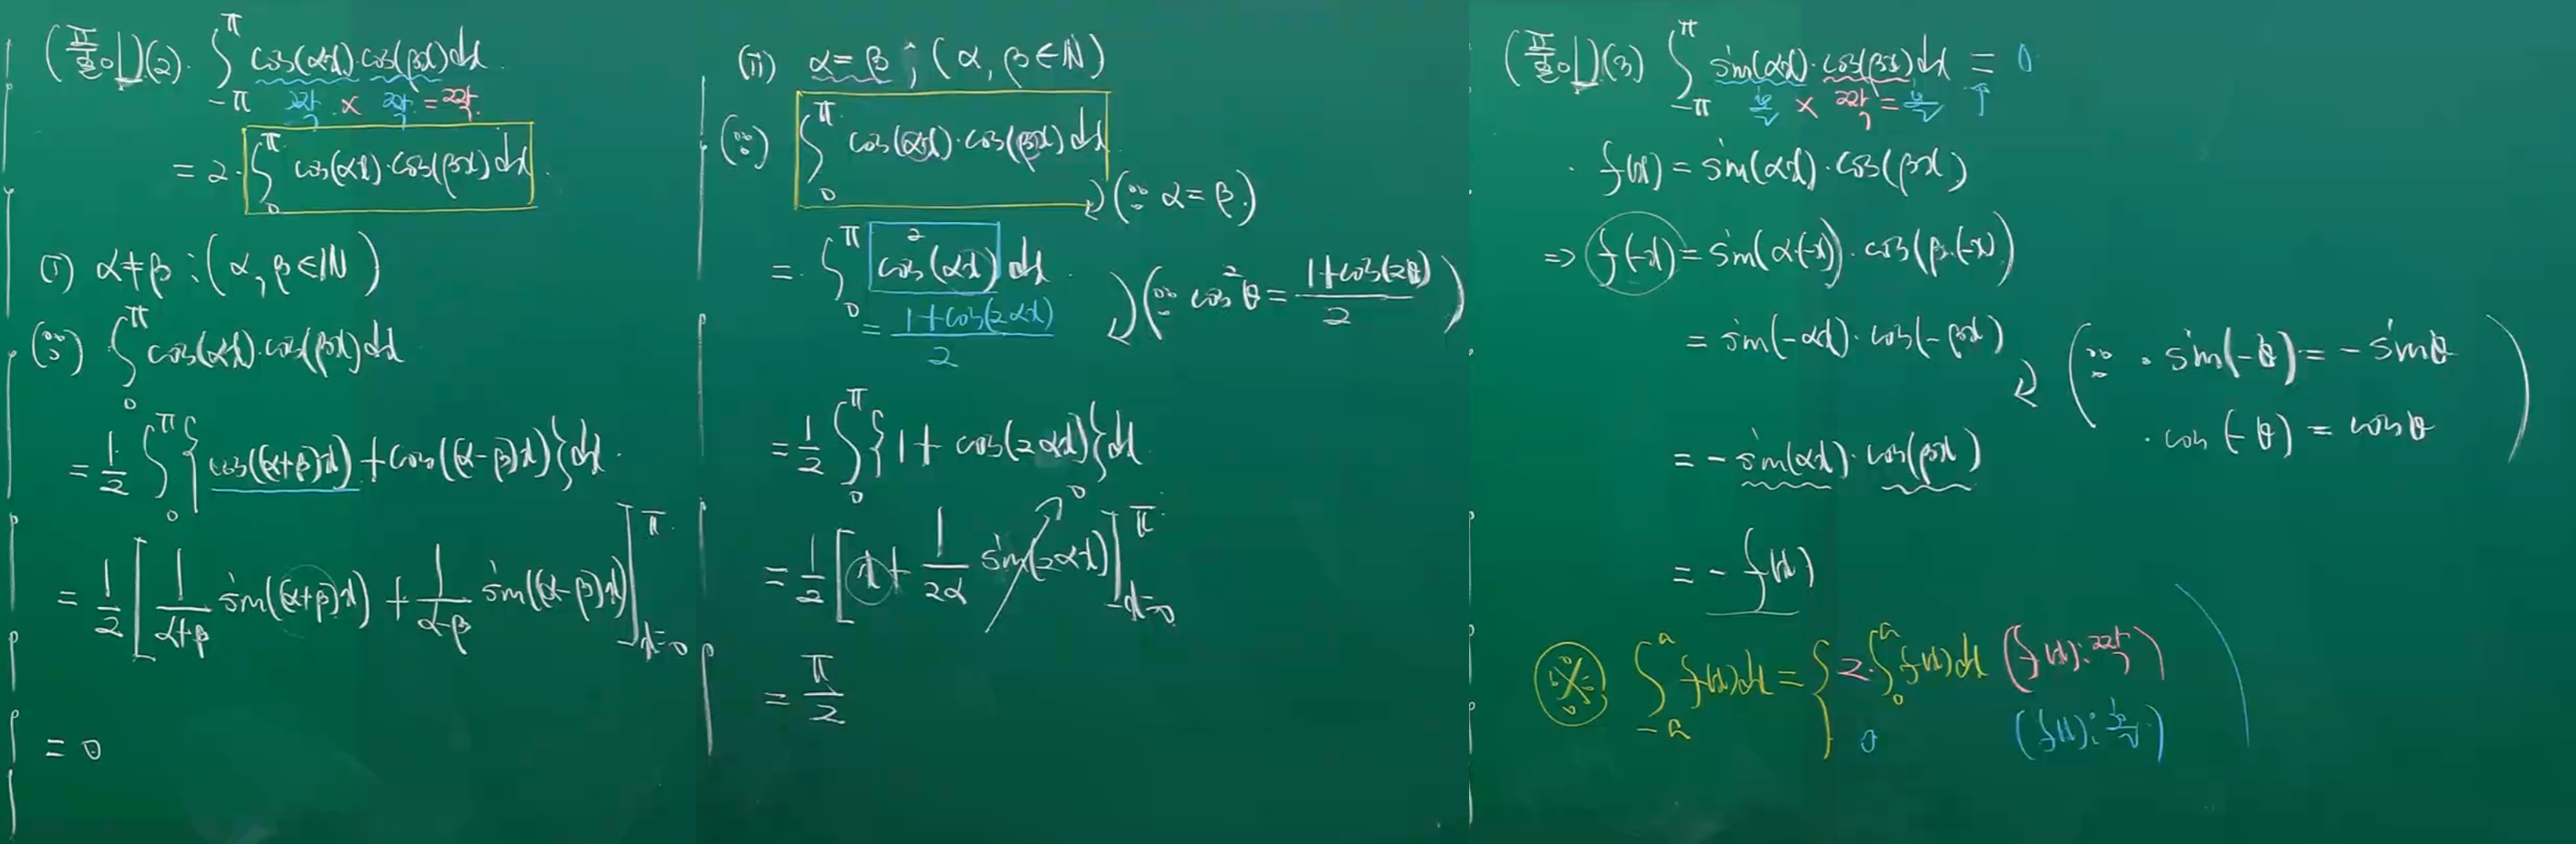 (풀이)(2). ∫_{-π}^{π} cos(αx)·cos(βx)dx
짝 × 짝 = 짝
= 2·∫_{0}^{π} cos(αx)·cos(βx)dx
(i) α≠β ; (α, β∈ℕ)
(∵) ∫_{0}^{π} cos(αx)·cos(βx)dx
= 1/2 ∫_{0}^{π} {cos((α+β)x) + cos((α-β)x)}dx
= 1/2 [1/(α+β) sin((α+β)x) + 1/(α-β) sin((α-β)x)]_{x=0}^{π}
= 0
(ii) α=β ; (α, β∈ℕ)
(∵) ∫_{0}^{π} cos(αx)·cos(βx)dx
(∵ α=β)
= ∫_{0}^{π} cos²(αx) dx
= (1+cos(2αx))/2
(∵ cos²θ = (1+cos(2θ))/2)
= 1/2 ∫_{0}^{π} {1 + cos(2αx)}dx
= 1/2 [x + 1/(2α) sin(2αx)]_{x=0}^{π} 0
= π/2
(풀이)(3) ∫_{-π}^{π} sin(αx)·cos(βx)dx = 0
홀 × 짝 = 홀 ↑
· f(x) = sin(αx)·cos(βx)
⇒ f(-x) = sin(α(-x))·cos(β·(-x))
= sin(-αx)·cos(-βx)
(∵ · sin(-θ) = -sinθ
· cos(-θ) = cosθ)
= -sin(αx)·cos(βx)
= -f(x)
※ ∫_{-a}^{a} f(x)dx = { 2·∫_{0}^{a} f(x)dx (f(x):짝)
0 (f(x):홀)